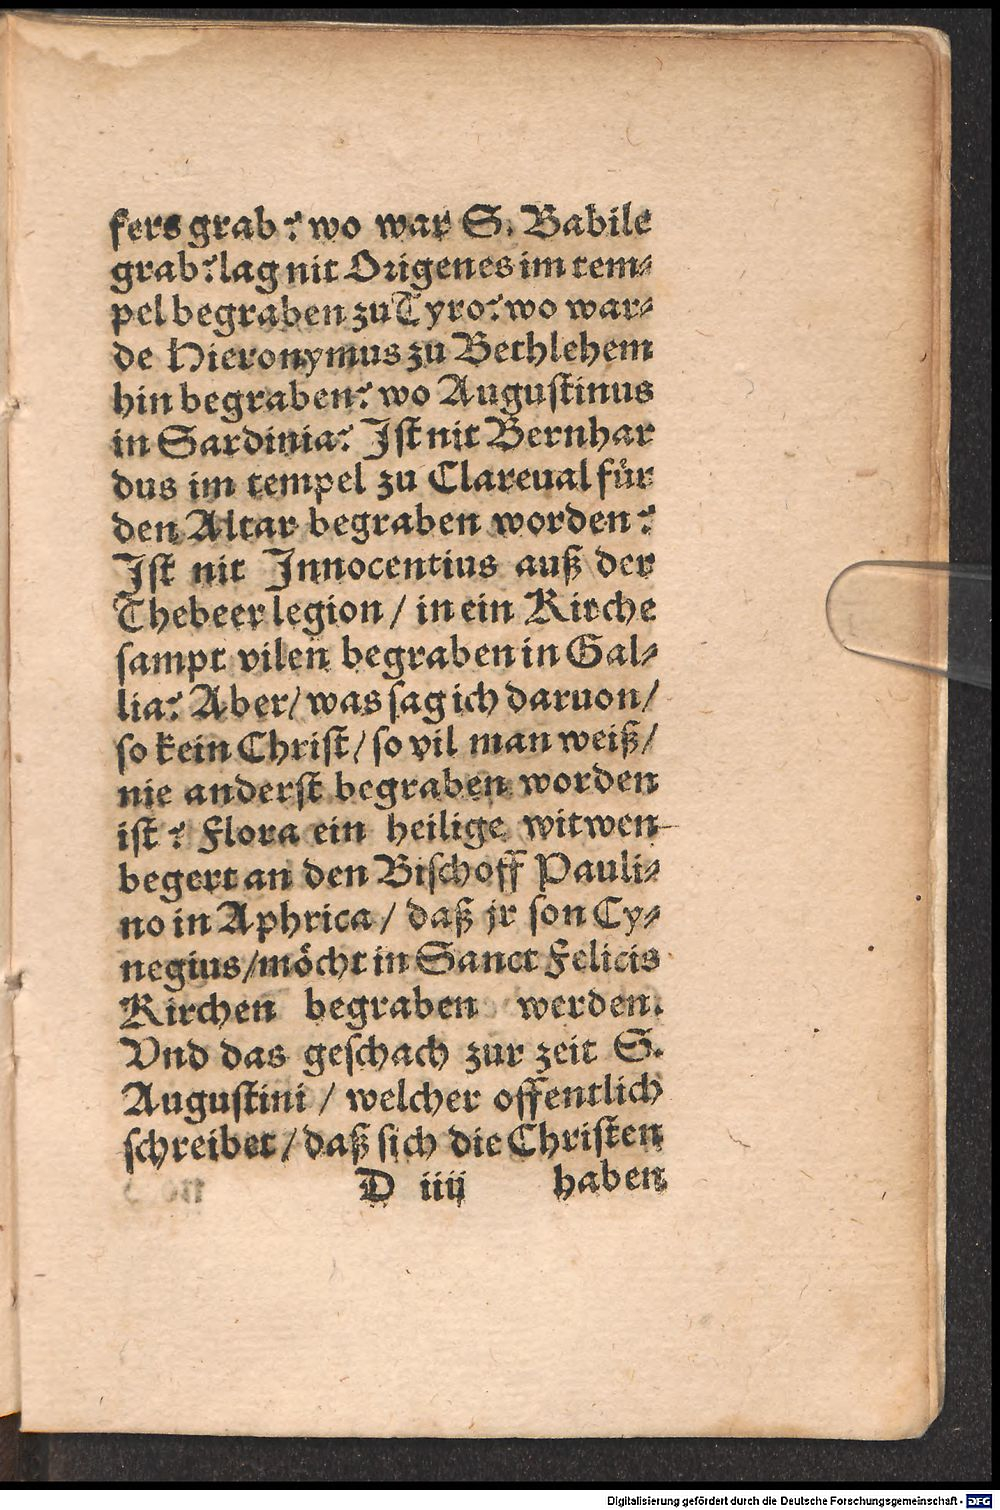 fers grab? wo war S. Babile
grab? lag nit Origenes im tem⸗
pel begraben zu Tyro? wo war⸗
de Hieronymus zu Bethlehem
hin begraben? wo Augustinus
in Sardinia? Ist nit Bernhar
dus im tempel zu Clareual für
den Altar begraben worden?
Ist nit Innocentius auß der
Thebeer legion / in ein Kirche
sampt vilen begraben in Gal⸗
lia? Aber / was sag ich daruon /
so kein Christ / so vil man weiß /
nie anderst begraben worden
ist? Flora ein heilige witwen
begert an den Bischoff Pauli⸗
no in Aphrica / daß jr son Cy⸗
negius / möcht in Sanct Felicis
Kirchen begraben werden.
Vnd das geschach zur zeit S.
Augustini / welcher offentlich
schreibet / daß sich die Christen
D iiij haben
Digitalisierung gefördert durch die Deutsche Forschungsgemeinschaft - DFG